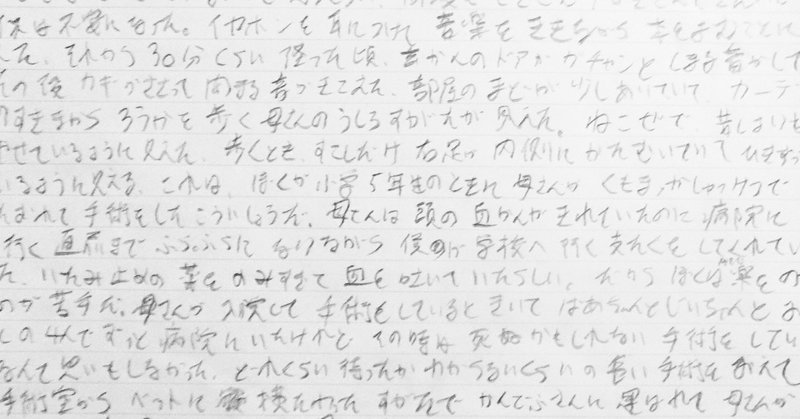 休は不安になった。イヤホンを耳につけて音楽をききながら本をよむことに
た。それから30分くらい経った頃、玄かんのドアがガチャンとしまる音がして
その後カギがささって閉まる音がきこえた。部屋のまどが少しあいていてカーテ
のすきまからろうかを歩く母さんのうしろすがたが見えた。ねこぜで、昔しよりも
やせているように見えた。歩くとき、すこしだけ右足が内側にかたむいていてひきずっ
いるように見える。これは、ぼくが小学5年生のときに母さんがくもまっかしゅっけつで
たおれて手術をしたこういしょうだ。母さんは頭の血かんがきれていたのに病院に
行く直前までふらふらになりながら僕が学校へ行く支たくをしてくれてい
た。いたみ止めの薬をのみすぎて血を吐いていたらしい。だからぼくは薬をの
のが苦手だ。母さんが入院して手術をしているときいてばあちゃんとじいちゃんとお
しの4人でずっと病院にいたけれど、その時は死ぬかもしれない手術をしてい
なんて思いもしなかった。どれくらい待ったかわからないくらいの長い手術をおえて
手術室からベットに横たわったすがたでかんごふさんに運ばれて母さんが